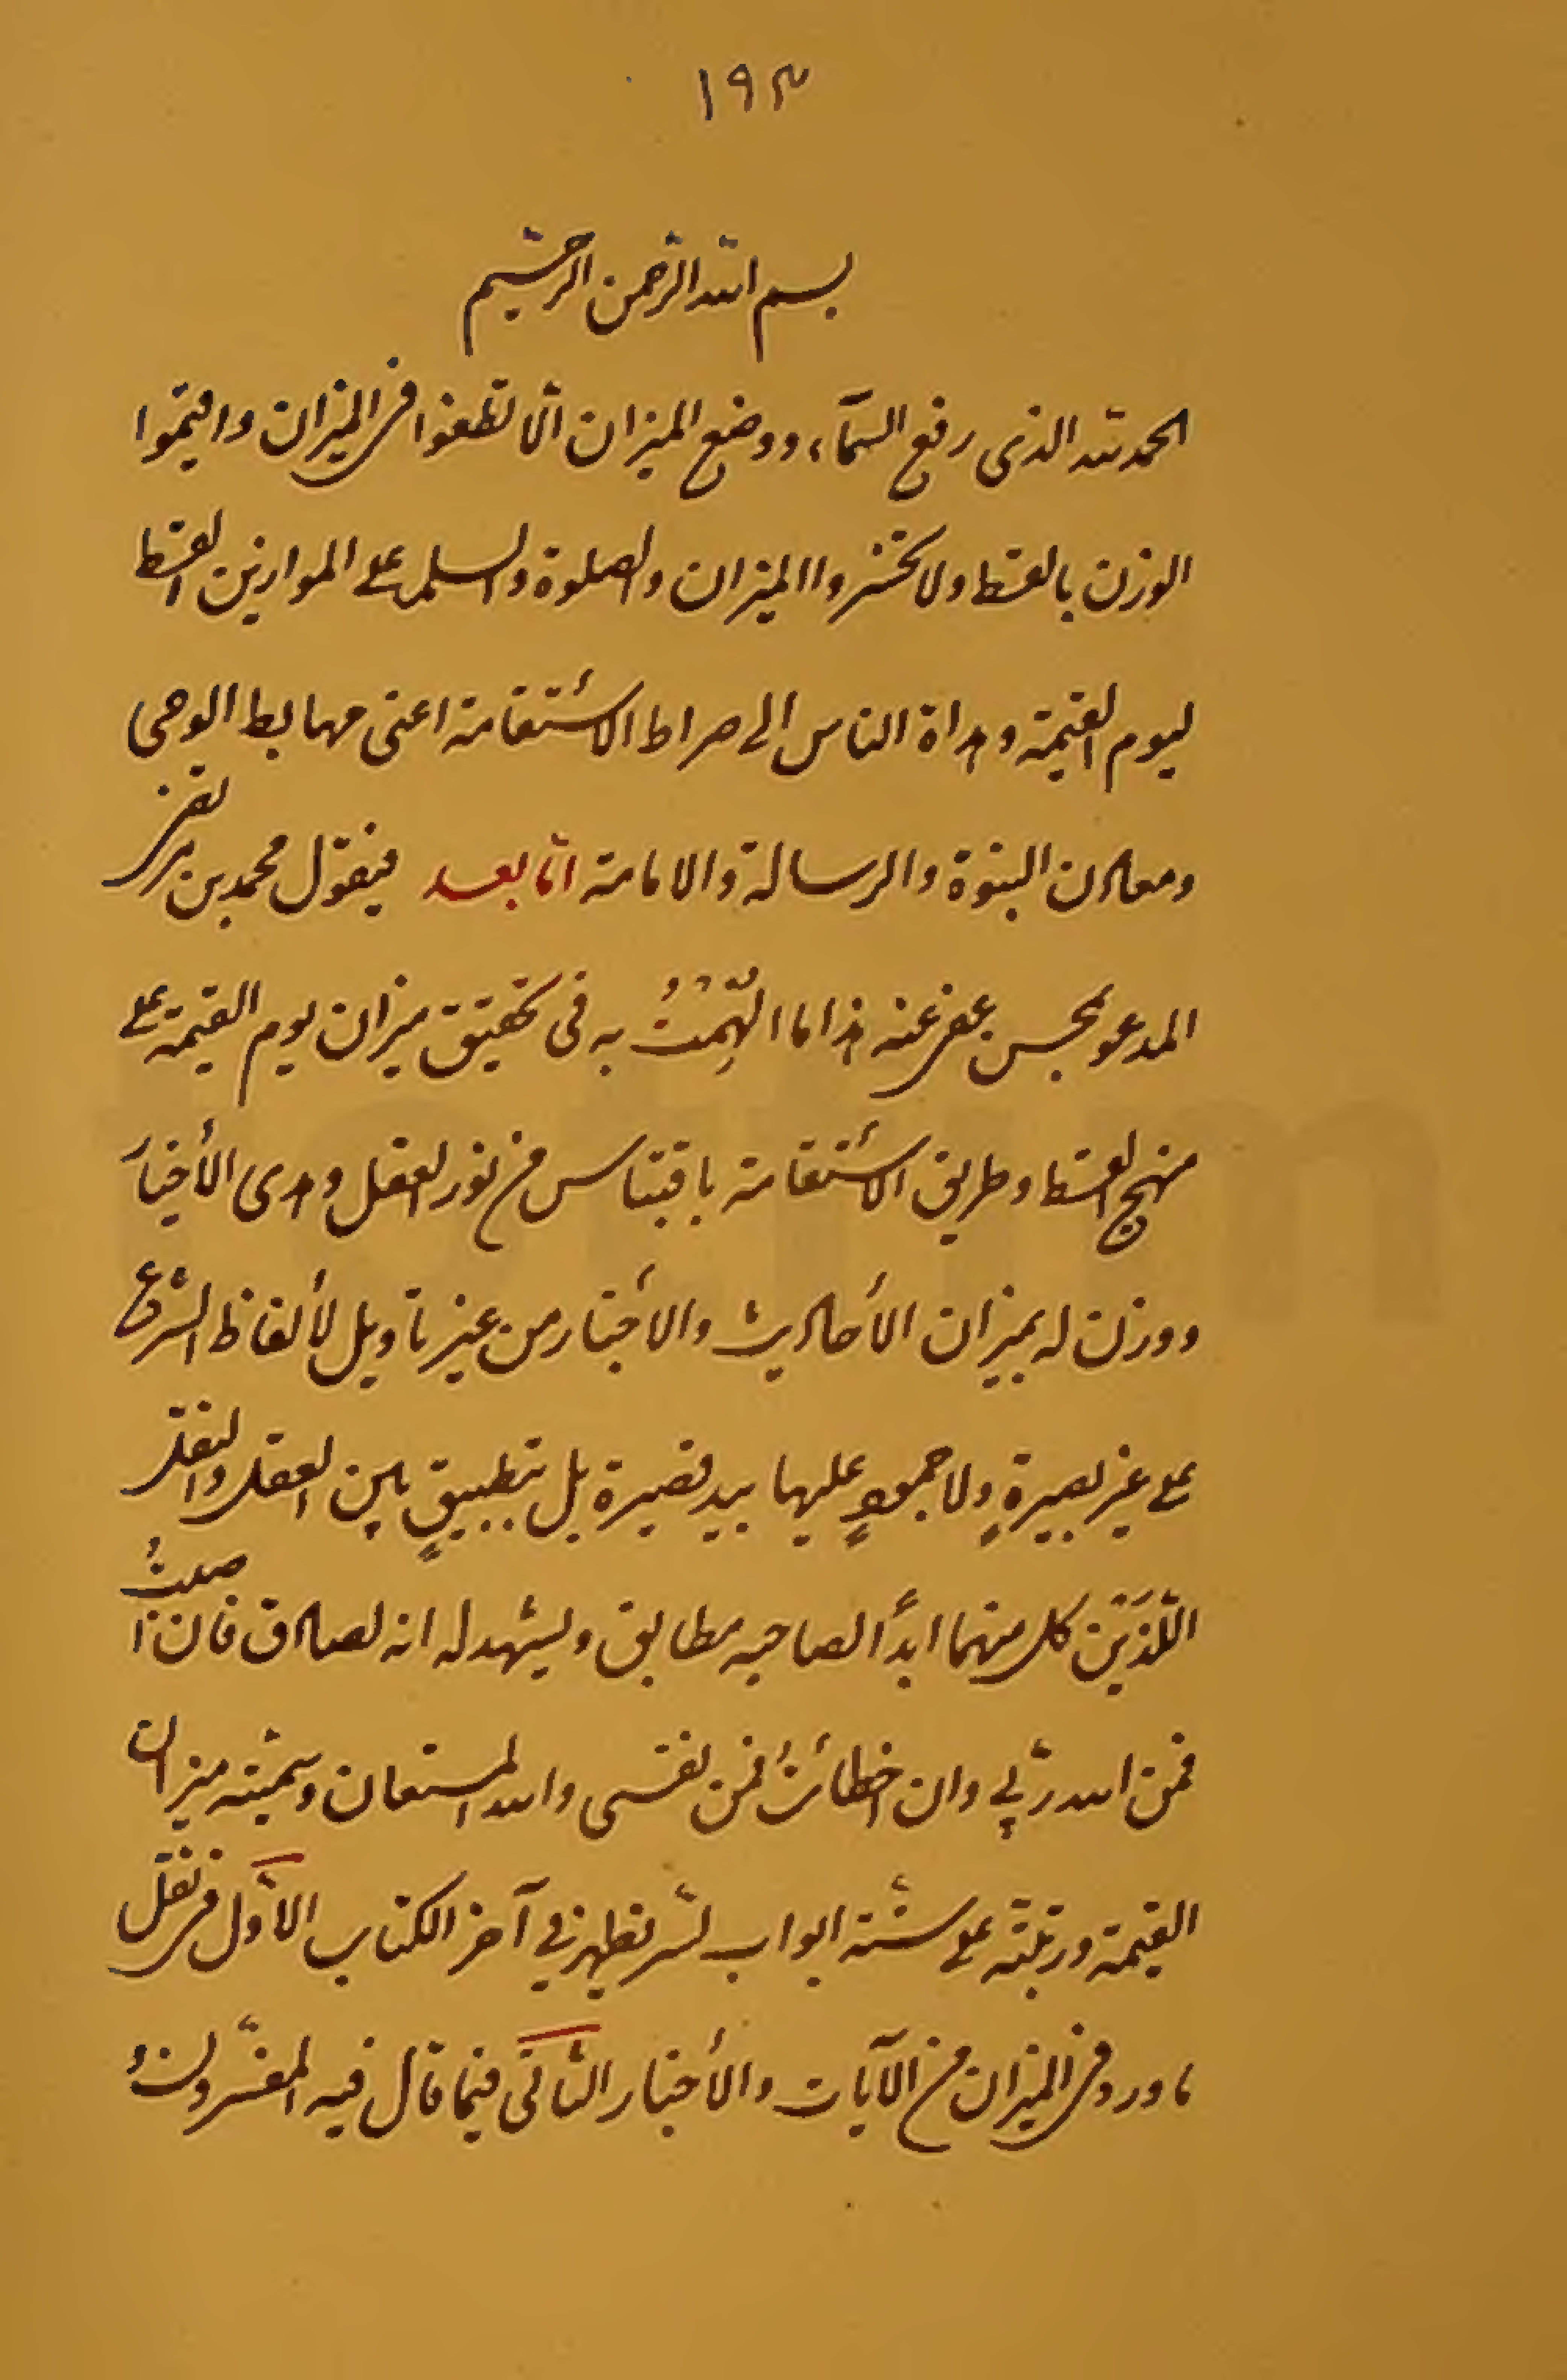 ١٩٣
بسم الله الرحمن الرحيم
الحمد لله الذى رفع السمآء ووضع الميزان الّا تطغوا فى الميزان واقيموا
الوزن بالقسط ولا تخسروا الميزان والصلوة والسلم على الموازين القسط
ليوم القيمة وهداة الناس الى صراط الأستقامة اعنى مهابط الوحى
ومعادن النبوّة والرسالة والامامة امّا بعد فيقول محمد بن مرتضى
المدعو بمحسن عفى عنه هذا ما اُلهِمْتُ به فى تحقيق ميزان يوم القيمة على
منهج القسط وطريق الأستقامة باقتباس من نور العقل وهدى الأخيار
ووزن له بميزان الأحاديث والأخبار من غير تأويل لألفاظ الشرع
على غير بصيرةٍ ولا جمودٍ عليها بيد قصيرة بل بتطبيقٍ بين العقل والنقل
اللّذَيْن كل منهما ابداً لصاحبه مطابق ويشهد له انه لصادق فان اصبتُ
فمن الله ربّي وان اخطأتُ فمن نفسى والله المستعان وسمّيته ميزان
القيمة ورتّبته على ستّة ابواب لسّر يظهر في آخر الكتاب الأوّل فى نقل
ما ورد فى الميزان من الآيات والأخبار الثانى فيما قال فيه المفسّرون و